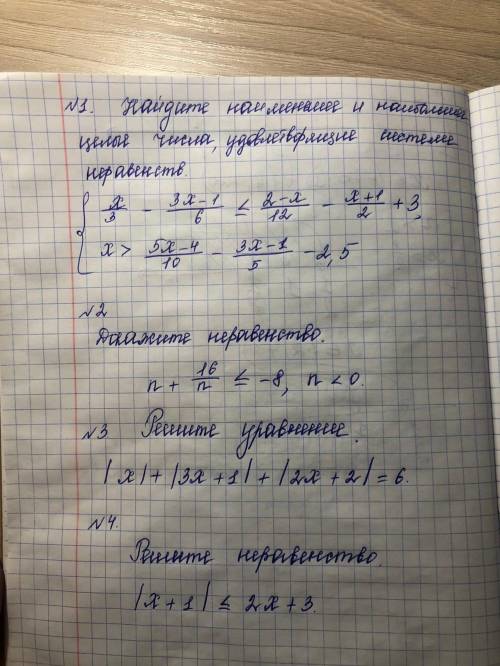 №1. Найдите наименьшее и наибольшее
целые числа, удовлетворяющие системе
неравенств.
{ x/3 - (3x-1)/6 ≤ (2-x)/12 - (x+1)/2 + 3,
x > (5x-4)/10 - (3x-1)/5 - 2,5
№2
Докажите неравенство.
n + 16/n ≤ -8, n < 0.
№3 Решите уравнение.
|x| + |3x+1| + |2x+2| = 6.
№4.
Решите неравенство.
|x+1| ≤ 2x+3.